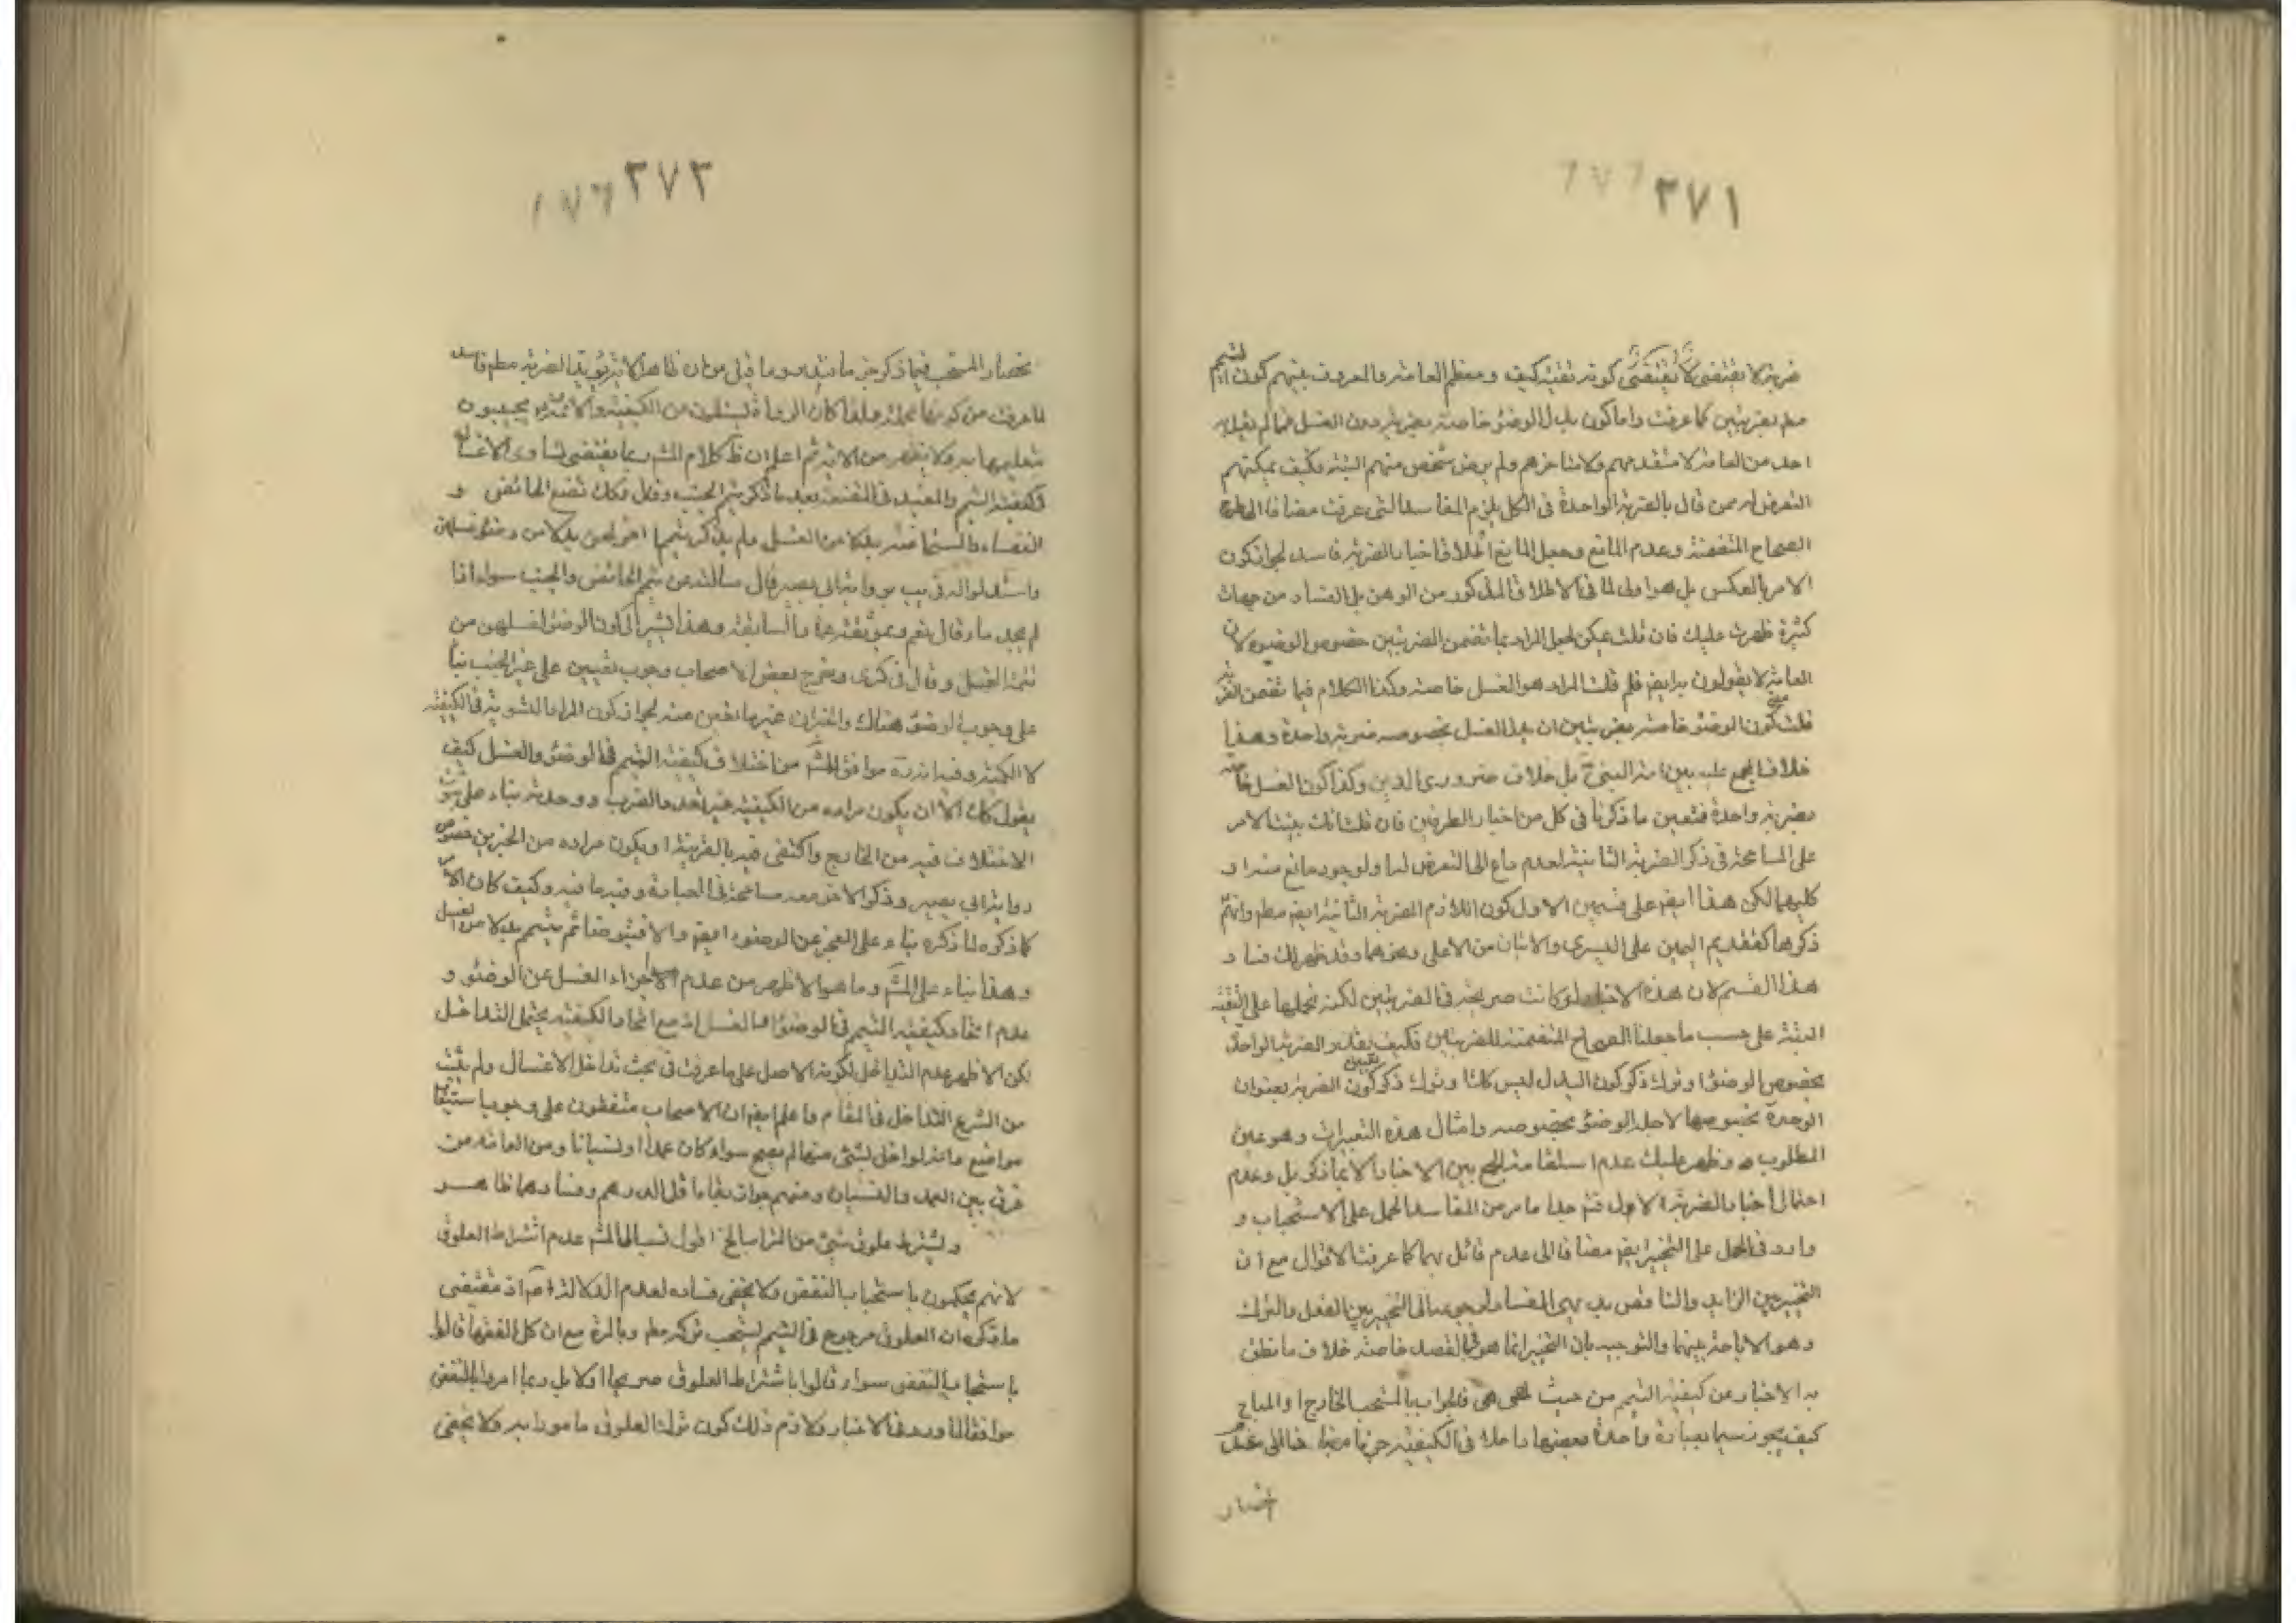 ٣٧١
ضربة لا يقتضى لا يقتضى كونه تقية كيف ومعظم العامة والمعروف بينهم كون التيمم
مطلم بضربتين كما عرفت واما كون بدل الوضوء خاصة بضربة دون الغسل فما لم يقل به
احد من العامة لا متقدميهم ولا متاخرهم ولم يرض شخص منهم البتة فكيف يمكنهم
التعرض لهم من قال بالضربة الواحدة فى الكل يلزم المفاسد التى عرفت مضافا الى طرح
الصحاح المتضمنة وعدم المانع وجعل المانع اطلاق اخبار الضربة فاسد لجواز كون
الامر بالعكس بل هو اولى لما فى الاطلاق المذكور من الوهن بل الفساد من جهات
كثيرة ظهرت عليك فان قلت يمكن جعل المراد بما تضمن الضربتين خصوص الوضوء لان
العامة لا يقولون به ايضا قلت المراد هو الغسل خاصة وكذا الكلام فيما تضمن الضربة
قلت كون الوضوء خاصة بضربتين ان بدل الغسل بخصوصه ضربة واحدة وهذا
خلاف المجمع عليه بين امة النبى بل خلاف ضرورى الدين وكذا كون الغسل خاصة
بضربة واحدة فتعين ما ذكرنا فى كل من اخبار الطرفين فان قلت انت بنيت الامر
على المسامحة فى ذكر الضربة الثانية لعدم داع الى التعرض لها ولوجود مانع منه او
كليهما لكن هذا ايضا على قسمين الاول كون اللازم الضربة الثانية ايضا مطلم وانتم
ذكرها كتقديم اليمين على اليسرى والاتيان من الاعلى ونحوهما وقد ظهر لك فساد
هذا القسم لان هذه الاخبار لو كانت صريحة فى الضربتين لكنا نحملها على التقية
البتة على حسب ما جعلنا الصحاح المتضمنة للضربتين فكيف بقدر الضربة الواحدة
بخصوص الوضوء او ترك ذكر كون البدل ليس كذا وترك ذكر كون الضربة بعنوان
الوحدة بخصوصها لاجل الوضوء بخصوصه وامثال هذه التعبيرات وهو عين
المطلوب وظهر عليك عدم استقامة الجمع بين الاخبار الا بما ذكر بل وعدم
احتمال اخبار الضربة الاول فتدبر جدا ما مر من المفاسد الحمل على الاستحباب و
وارد فى الحمل على التخيير ايضا مضافا الى عدم قائل بهما كما عرفت الاقوال مع ان
التخيير بين الزايد والناقص بديهى الفساد لرجوعه الى التخيير بين الفعل والترك
وهو الاباحة بينهما والتوجيه بان التخيير انما هو بالقصد خاصة خلاف ما نطق
به الاخبار عن كيفية التيمم من حيث هى هى فالجواب بالمستحب الخارج او المباح
كيف يجوز سيما بعبارة واحدة بعضها داخلا فى الكيفية جزءا منها
٣٧٢
انحصار المستحب فيما ذكر جزما فتدبر وما قيل من ان ظاهر الاية يؤيد الضربة مطلم فاسد
لما عرفت من كونها مجملة ولهذا كان الرواة يسئلون عن الكيفية والائمة يجيبون
بتعليمها به ولا يظهر من الاية ثم اعلم ان ظ كلام المشهور بما يقتضى تساوى الاغسال
فى كيفية التيمم والمفيد فى المقنعة بعد ما ذكر تيمم الجنب وقال وكك تصنع الحائض و
النفساء والمستحاضة بدلا من الغسل ولم يذكر تيمما اخر لهن بدلا من وضوء غسلهن
واستدلوا له فى يب برواية ابى بصير قال سالته عن تيمم الحائض والجنب سواء اذا
لم يجد ماء قال نعم وبموثقة عمار السابقة وهذا يشير الى كون الوضوء لغسلهن من
تتمة الغسل وقال فى كرى وخرج بعض الاصحاب وجوب تيممين على غير الجنب بناء
على وجوب الوضوء هناك والخبران غير مانعين عنه لجواز كون المراد التسوية فى الكيفية
لا الكمية وفيه انه موافق للمشهور من اختلاف كيفية التيمم فى الوضوء والغسل كيف
يقول كك الا ان يكون مراده من الكيفية غير تعدد الضرب ووحدته بناء على ثبوت
الاختلاف فيه من الخارج واكتفى فيه بالقرينة او يكون مراده من الخبرين خصوص
رواية ابى بصير وذكر الاخر معه مسامحة فى العبارة وفيه ما فيه وكيف كان الامر
كما ذكره لما ذكره بناء على العجز عن الوضوء ايضا والا فيتوضأ ثم يتيمم بدلا من الغسل
وهذا بناء على المشهور وما هو الاظهر من عدم اجزاء الغسل عن الوضوء و
عدم اتحاد كيفية التيمم فى الوضوء والغسل اذ مع اتحاد الكيفية يحتمل التداخل
لكن الاظهر عدم التداخل لكونه الاصل على ما عرفت فى بحث تداخل الاغسال ولم يثبت
من الشرع التداخل فى المقام واعلم ايضا ان الاصحاب متفقون على وجوب استيعاب
مواضع وانه لو اخل بشئ منها لم يصح سواء كان عمدا او نسيانا ومن العامة من
فرق بين العمد والنسيان ومنهم جواز بقاء ما قل الدرهم وفسادها ظاهر
ويشترط علوق شئ من التراب الخ اقول نسب الى المشهور عدم اشتراط العلوق
لانهم يحكمون باستحباب النفض ولا يخفى فساده لعدم الدلالة اذ مقتضى
ما ذكره ان العلوق مرجوح فى التيمم يستحب تركه مطلم وبالمرة مع ان كل الفقهاء قالوا
باستحباب النفض سواء قالوا باشتراط العلوق صريحا او لا بل ربما امروا بالنفض
موافقا لما ورد فى الاخبار ولازم ذلك كون ترك العلوق مامورا به ولا يخفى